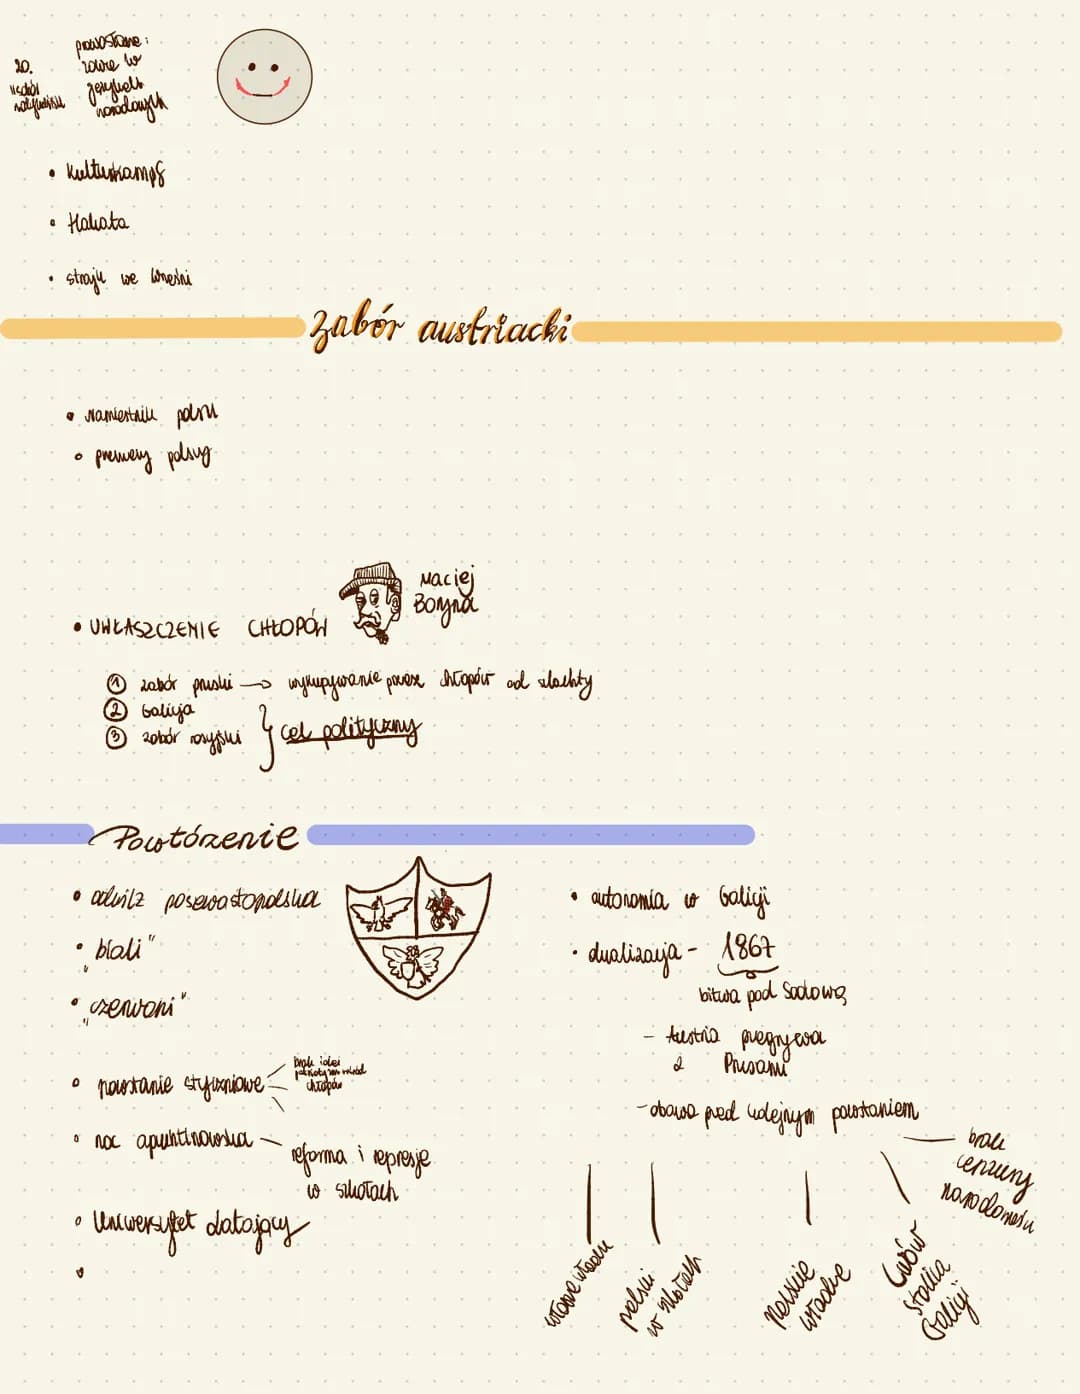 20.
w
narodowych
• Kulturkampf
• Hakata
• strajk we Wreśni
zabór austriacki
• Namiestnik polski
• premierzy polscy
Maciej
Boryna
• UWŁASZCZENIE CHŁOPÓW
① zabór pruski → wykupywanie przez chłopów od szlachty
② Galicja
③ zabór rosyjski } cel polityczny
Powtórzenie
• odwilż posewastopolska
• „biali"
• „czerwoni"
• powstanie styczniowe
brak idei
patriotyzm wśród
chłopów
• noc apuchtinowska – reforma i represje
w szkołach
• Uniwersytet Latający
• autonomia w Galicji
• dualizacja - 1867
bitwa pod Sadową
- Austria przegrywa
z Prusami
- obawa przed kolejnym powstaniem
brak
cenzury
narodowości
polski
w szkołach
polskie
władze
Lwów
Stolica
Galicji